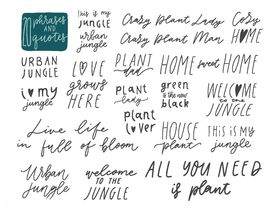 20 phrases
AND
quotes
this is my
jungle
urban
jungle
Crazy Plant Lady
Crazy Plant Man
Cozy
HOME
URBAN
JUNGLE
LOVE
GROWS
HERE
PLANT
dad
HOME sweet HOME
i my
jungle
plant
lady
green
is the new
black
WELCOME
to the
JUNGLE
Live life
in full of bloom
plant
lover
HOUSE
PLANT
THIS IS MY
JUNGLE
Urban
jungle
welcome
TO THE
JUNGLE
ALL YOU NEED
is plant